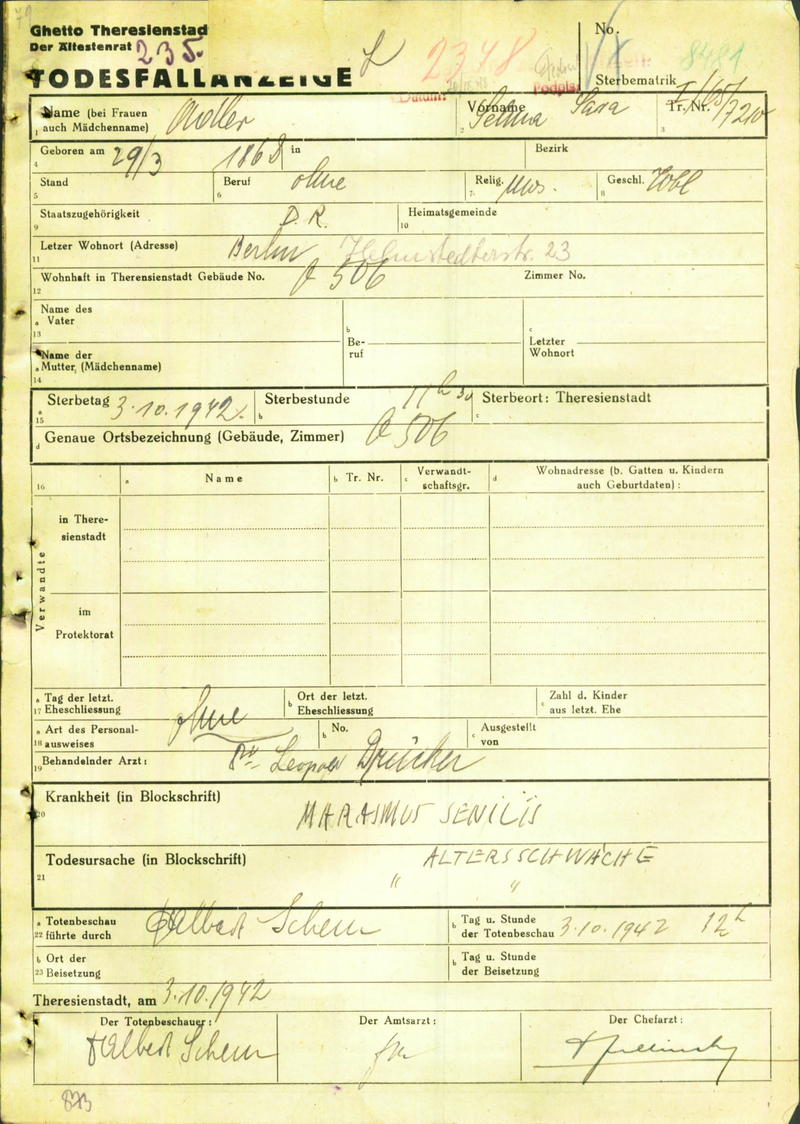 Ghetto Theresienstad
Der Ältestenrat 235.
TODESFALLANZEIGE
2348
No.
8481
Sterbematrik
Datum:
Podpis:
Name (bei Frauen
1 auch Mädchenname) Adler
Vorname
2 Selma Sara
Tr. Nr.
3 I/65/7210
Geboren am 29/3 1868 in
4
Bezirk
Stand
5
Beruf ohne
6
Relig. mos.
7
Geschl. weibl
8
Staatszugehörigkeit D. R.
9
Heimatsgemeinde
10
Letzer Wohnort (Adresse) Berlin Helmstedterstr. 23
11
Wohnhaft in Therensienstadt Gebäude No. 506
12
Zimmer No.
Name des
a Vater
13
b
Be-
ruf
c
Letzter
Wohnort
Name der
a Mutter, (Mädchenname)
14
a Sterbetag 3.10.1942.
15
Sterbestunde 11h 30
b
Sterbeort: Theresienstadt
c
d Genaue Ortsbezeichnung (Gebäude, Zimmer) 506
16
a Name
b Tr. Nr.
c Verwandt-
schaftsgr.
d Wohnadresse (b. Gatten u. Kindern
auch Geburtdaten) :
Verwandte
in There-
sienstadt
im
Protektorat
a Tag der letzt.
17 Eheschliessung
b Ort der letzt.
Eheschliessung
c Zahl d. Kinder
aus letzt. Ehe
ohne
a Art des Personal-
18 ausweises
b No.
c Ausgestellt
von
19 Behandelnder Arzt: Dr Leopold Drücker
Krankheit (in Blockschrift)
20 MARASMUS SENILIS
Todesursache (in Blockschrift) ALTERSSCHWÄCHE
21 " "
a Totenbeschau
22 führte durch Albert Schem
b Tag u. Stunde
der Totenbeschau 3.10.1942 12h
b Ort der
23 Beisetzung
b Tag u. Stunde
der Beisetzung
Theresienstadt, am 3.10.1942
Der Totenbeschauer:
Albert Schem
Der Amtsarzt:
Der Chefarzt:
873